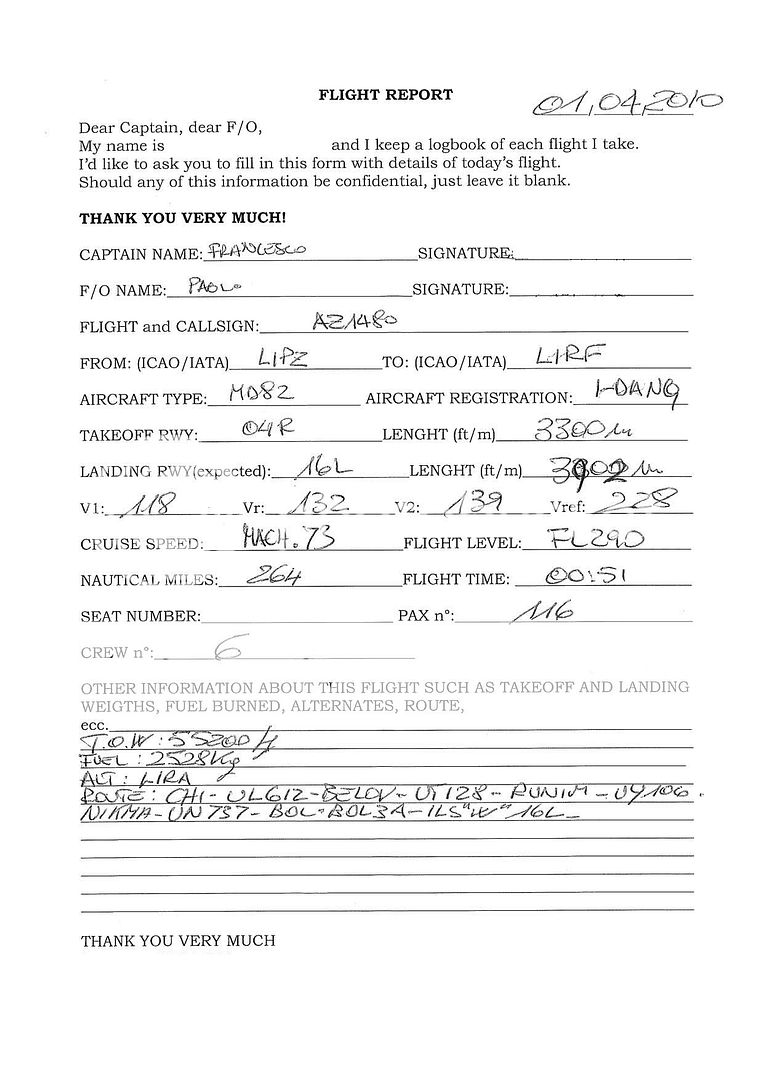 FLIGHT REPORT
01,04,2010
Dear Captain, dear F/O,
My name is and I keep a logbook of each flight I take.
I'd like to ask you to fill in this form with details of today's flight.
Should any of this information be confidential, just leave it blank.
THANK YOU VERY MUCH!
CAPTAIN NAME: FRANCESCO SIGNATURE:
F/O NAME: PAOLO SIGNATURE:
FLIGHT and CALLSIGN: AZ1480
FROM: (ICAO/IATA) LIPZ TO: (ICAO/IATA) LIRF
AIRCRAFT TYPE: MD82 AIRCRAFT REGISTRATION: I-DANQ
TAKEOFF RWY: 04R LENGHT (ft/m) 3300 m
LANDING RWY(expected): 16L LENGHT (ft/m) 3902 m
V1: 118 Vr: 132 V2: 139 Vref: 228
CRUISE SPEED: MACH.73 FLIGHT LEVEL: FL290
NAUTICAL MILES: 264 FLIGHT TIME: 00:51
SEAT NUMBER: PAX n°: 116
CREW n°: 6
OTHER INFORMATION ABOUT THIS FLIGHT SUCH AS TAKEOFF AND LANDING
WEIGTHS, FUEL BURNED, ALTERNATES, ROUTE,
ecc.
T.O.W: 55200
FUEL: 2528Kg
ALT: LIRA
ROUTE: CHI-UL612-BELOV-UT128-RUNIM-UY106.
NIKMA-UN737-BOL-BOL3A-ILS"W"16L
THANK YOU VERY MUCH